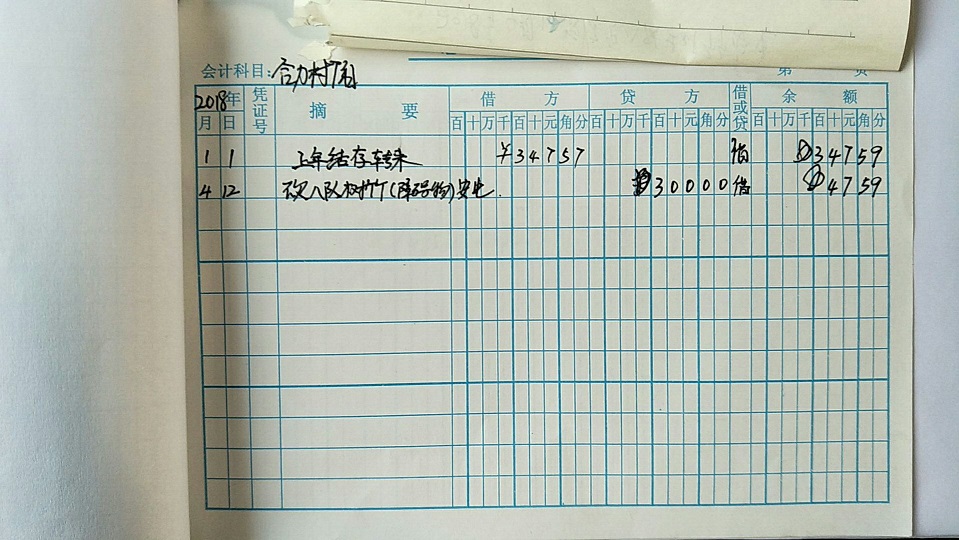 会计科目:合力村
第 页
2018年 凭证号 摘 要 借 方 贷 方 借或贷 余 额
月 日 百十万千百十元角分 百十万千百十元角分 百十万千百十元角分
1 1 上年结存转来 ¥34757 借 34759
4 12 八队树竹(障碍物) 30000 借 4759